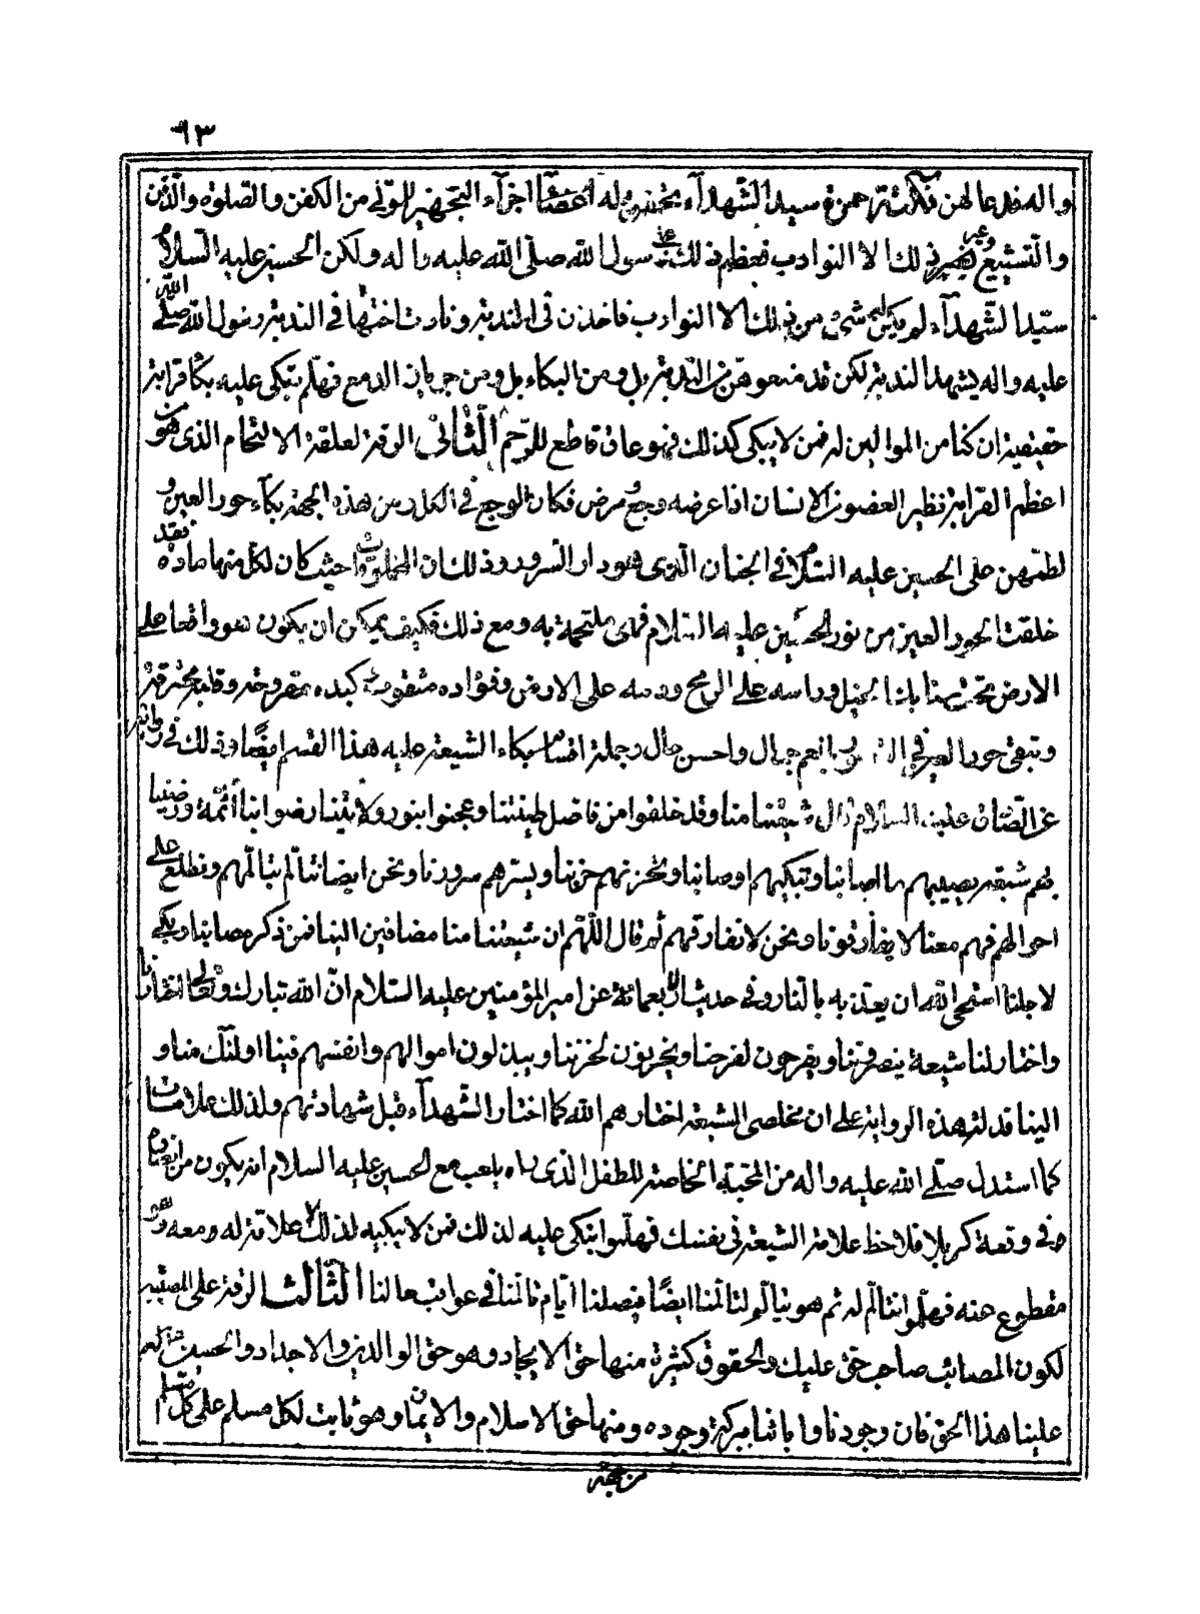 ٩٣
واله فدعا لهن سيد الشهداء له اجزاء التجهيز للموتى من الكفن والصلوة والدفن
والتشييع وغير ذلك الا النوادب فعظم ذلك على رسول الله صلى الله عليه واله ولكن الحسين عليه السلام
سيد الشهداء لم يكن له شئ من ذلك الا النوادب فاخذن فى الندبة ونادت اختها فى الندبة رسول الله صلى الله
عليه واله يشهد الندبة لكن قد منعوهن من الندبة بل ومن البكاء بل ومن جريان الدمع فهلم نبكى عليه بكاء قرابة
حقيقية ان كنا من الموالين له فمن لا يبكى كذلك فهو عاق قاطع للرحم الثانى الرقة لعلقة الالتحام الذى هو من
اعظم القرابة نظير العضو من الانسان اذا عرضه وجع ومرض فكان الوجع فى الكل ومن هذه الجهة بكاء حور العين و
لطمهن على الحسين عليه السلام فى الجنان الذى هو دار السرور وذلك ان المخلوقات حيث كان لكل منها مادة فقد
خلقت الحور العين من نور الحسين عليه السلام فهى ملتحمة به ومع ذلك فكيف يمكن ان يكون هو واقعا على
الارض وراسه على الرمح ودمه على الارض وفؤاده مثقوب كبده مقروحة وقلبه محترقة
وتبقى حور العين فى انعم بال واحسن حال وجملة اقسام بكاء الشيعة عليه هذا القسم ايضا وذلك فى رواية
عن الصادق عليه السلام قال شيعتنا منا وقد خلقوا من فاضل طينتنا وعجنوا بنور ولايتنا رضوا بنا ائمة ورضينا
بهم شيعة يصيبهم ما اصابنا وتبكيهم اوصابنا ويحزنهم حزننا ويسرهم سرورنا ونحن ايضا نتالم بتالمهم ونطلع على
احوالهم فهم معنا لا يفارقونا ونحن لا نفارقهم ثم قال اللهم ان شيعتنا منا مضافين الينا فمن ذكر مصابنا وبكى
لاجلنا استحى الله ان يعذبه بالنار وفى حديث الاربعمائة عن امير المؤمنين عليه السلام ان الله تبارك وتعالى اختارنا
واختار لنا شيعة ينصروننا ويفرحون لفرحنا ويحزنون لحزننا ويبذلون اموالهم وانفسهم فينا اولئك منا و
الينا فدلت هذه الرواية على ان مخلصى الشيعة اختارهم الله كما اختار الشهداء قبل شهادتهم ولذلك علامات
كما استدل صلى الله عليه واله من المحبة الخاصة للطفل الذى راه يلعب مع الحسين عليه السلام انه يكون من انصاره
فى وقعة كربلا فلاحظ علامة الشيعة فى نفسك فهلموا نبكى عليه لذلك فمن لا يبكيه لذلك لا علاقة له ومعه وهو
مقطوع عنه فهلموا نتالم له ثم هو يتالم لتالمنا ايضا فيصلنا ايام تالمنا فى عواقب حالنا الثالث الرقة على المصيبة
لكون المصائب صاحب حق عليك والحقوق كثيرة منها حق الايجاد وهو حق الوالدين والاجداد والحسين له
علينا هذا الحق فان وجودنا وابائنا ببركة وجوده ومنها حق الاسلام والايمان وهو ثابت لكل مسلم على كل مسلم
من جهة